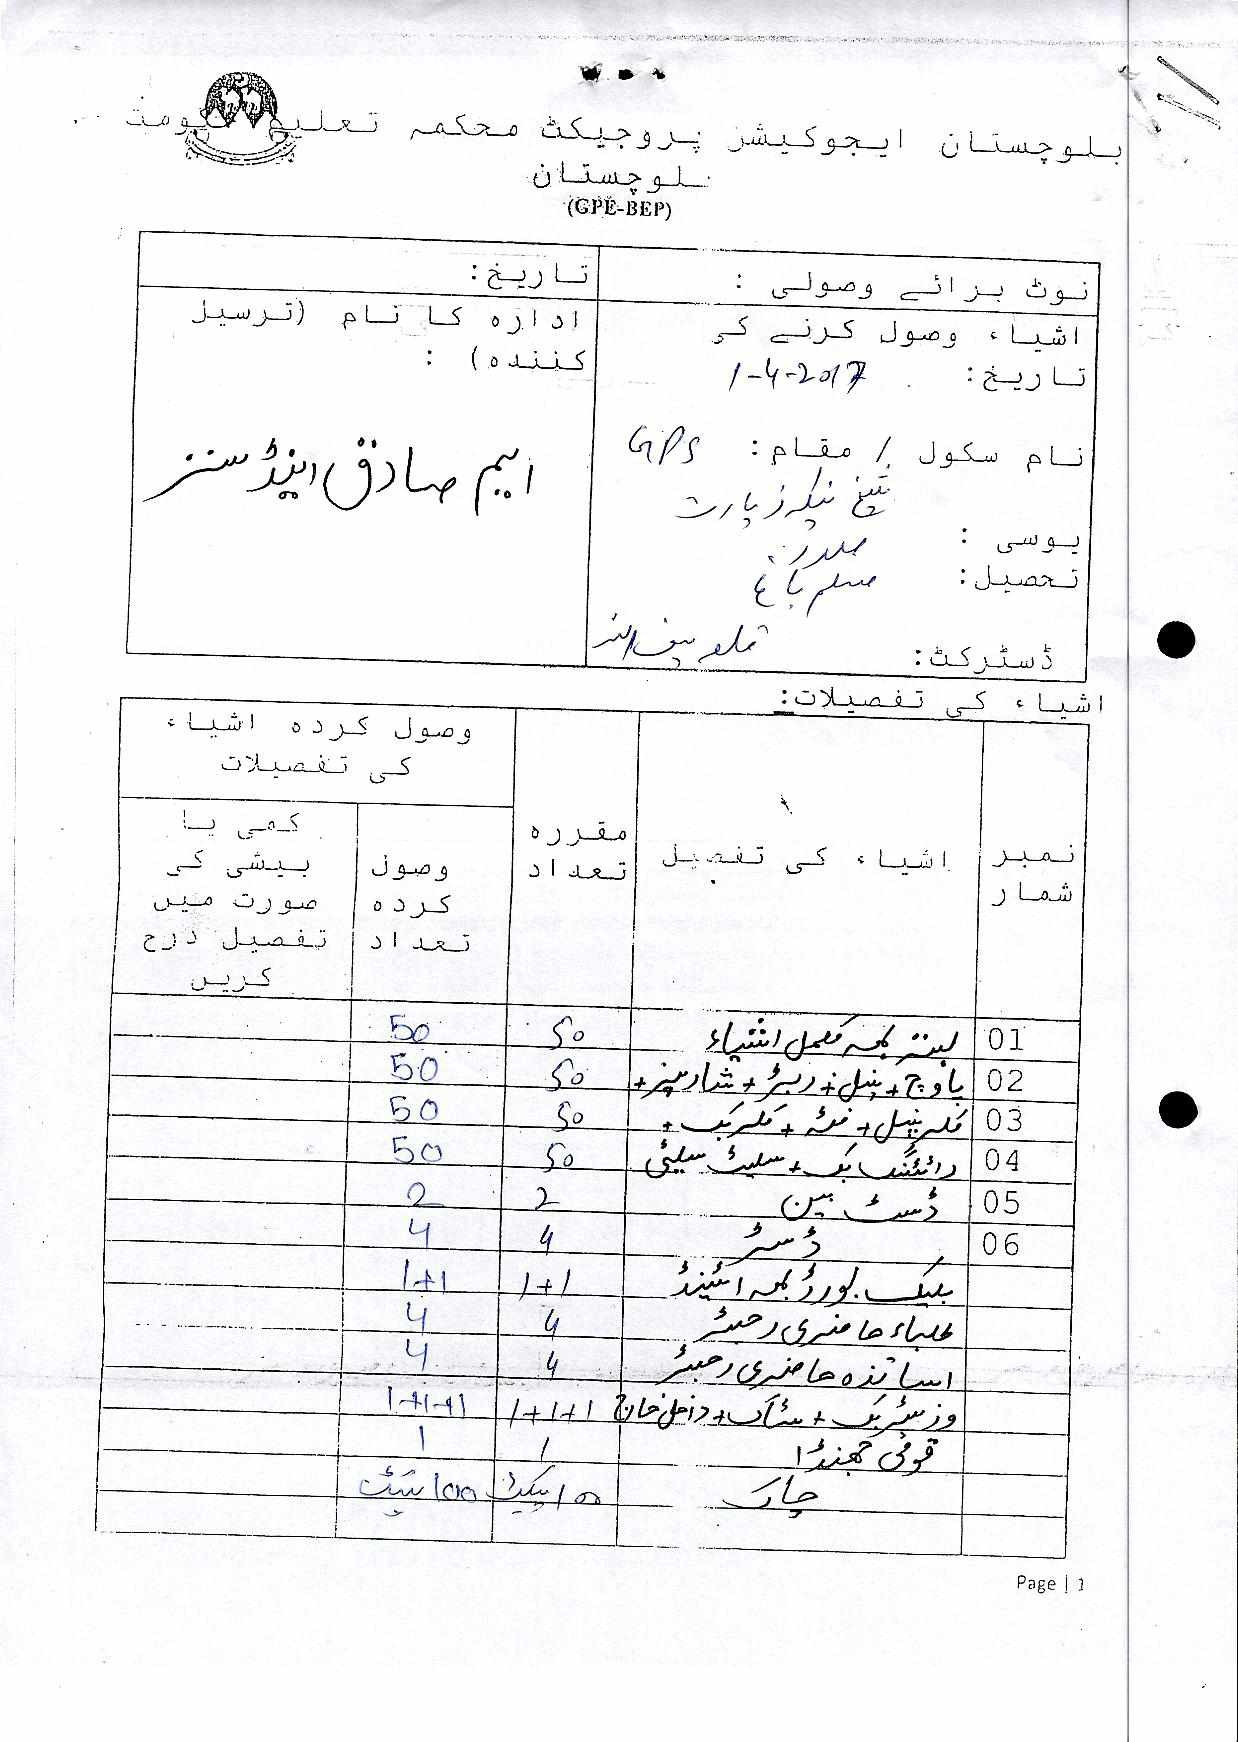 بلوچستان ایجوکیشن پروجیکٹ محکمہ تعلیم حکومت
بلوچستان
(GPE-BEP)
نوٹ برائے وصولی :
اشیاء وصول کرنے کی
تاریخ: 1-4-2017
نام سکول / مقام: GPS
یوسی :
تحصیل: مسلم باغ
ڈسٹرکٹ: قلعہ سیف اللہ
تاریخ:
ادارہ کا نام (ترسیل
کنندہ) :
ایم صادق اینڈ سنز
اشیاء کی تفصیلات:
نمبر شمار اشیاء کی تفصیل مقررہ تعداد وصول کردہ اشیاء کی تفصیلات
وصول کردہ تعداد کمی یا بیشی کی صورت میں تفصیل درج کریں
01 بستہ بمعہ مکمل اشیاء 50 50
02 پاوچ + پنسل + ربڑ + شارپنر + 50 50
03 کلر پنسل + فٹہ + کلر بک + 50 50
04 رائٹنگ بک + سلیٹ سلیٹی 50 50
05 ڈسٹ بین 2 2
06 ڈسٹر 4 4
بلیک بورڈ بمعہ اسٹینڈ 1+1 1+1
طلباء حاضری رجسٹر 4 4
اساتذہ حاضری رجسٹر 4 4
وزیٹر بک + سٹاک + داخل خارج 1+1+1 1+1+1
قومی جھنڈا 1 1
چاک 100 پیکٹ 100
Page | 1